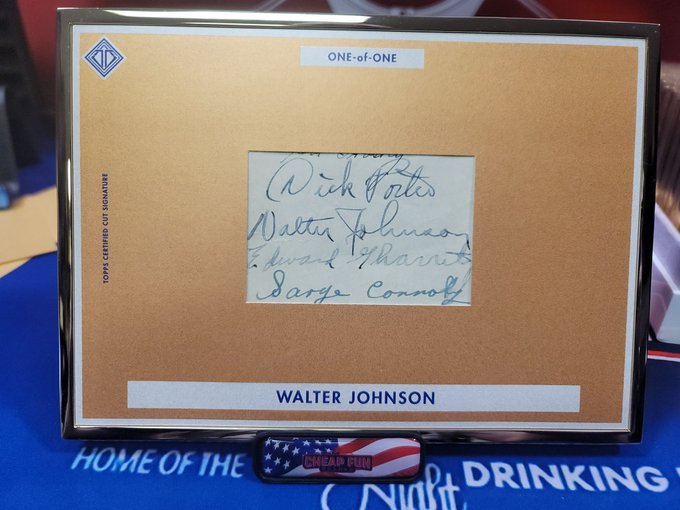 ONE-of-ONE
TOPPS CERTIFIED CUT SIGNATURE
Dick Porter
Walter Johnson
Edward
Sarge Connolly
WALTER JOHNSON
CHEAP FUN
HOME OF THE
Night
DRINKING